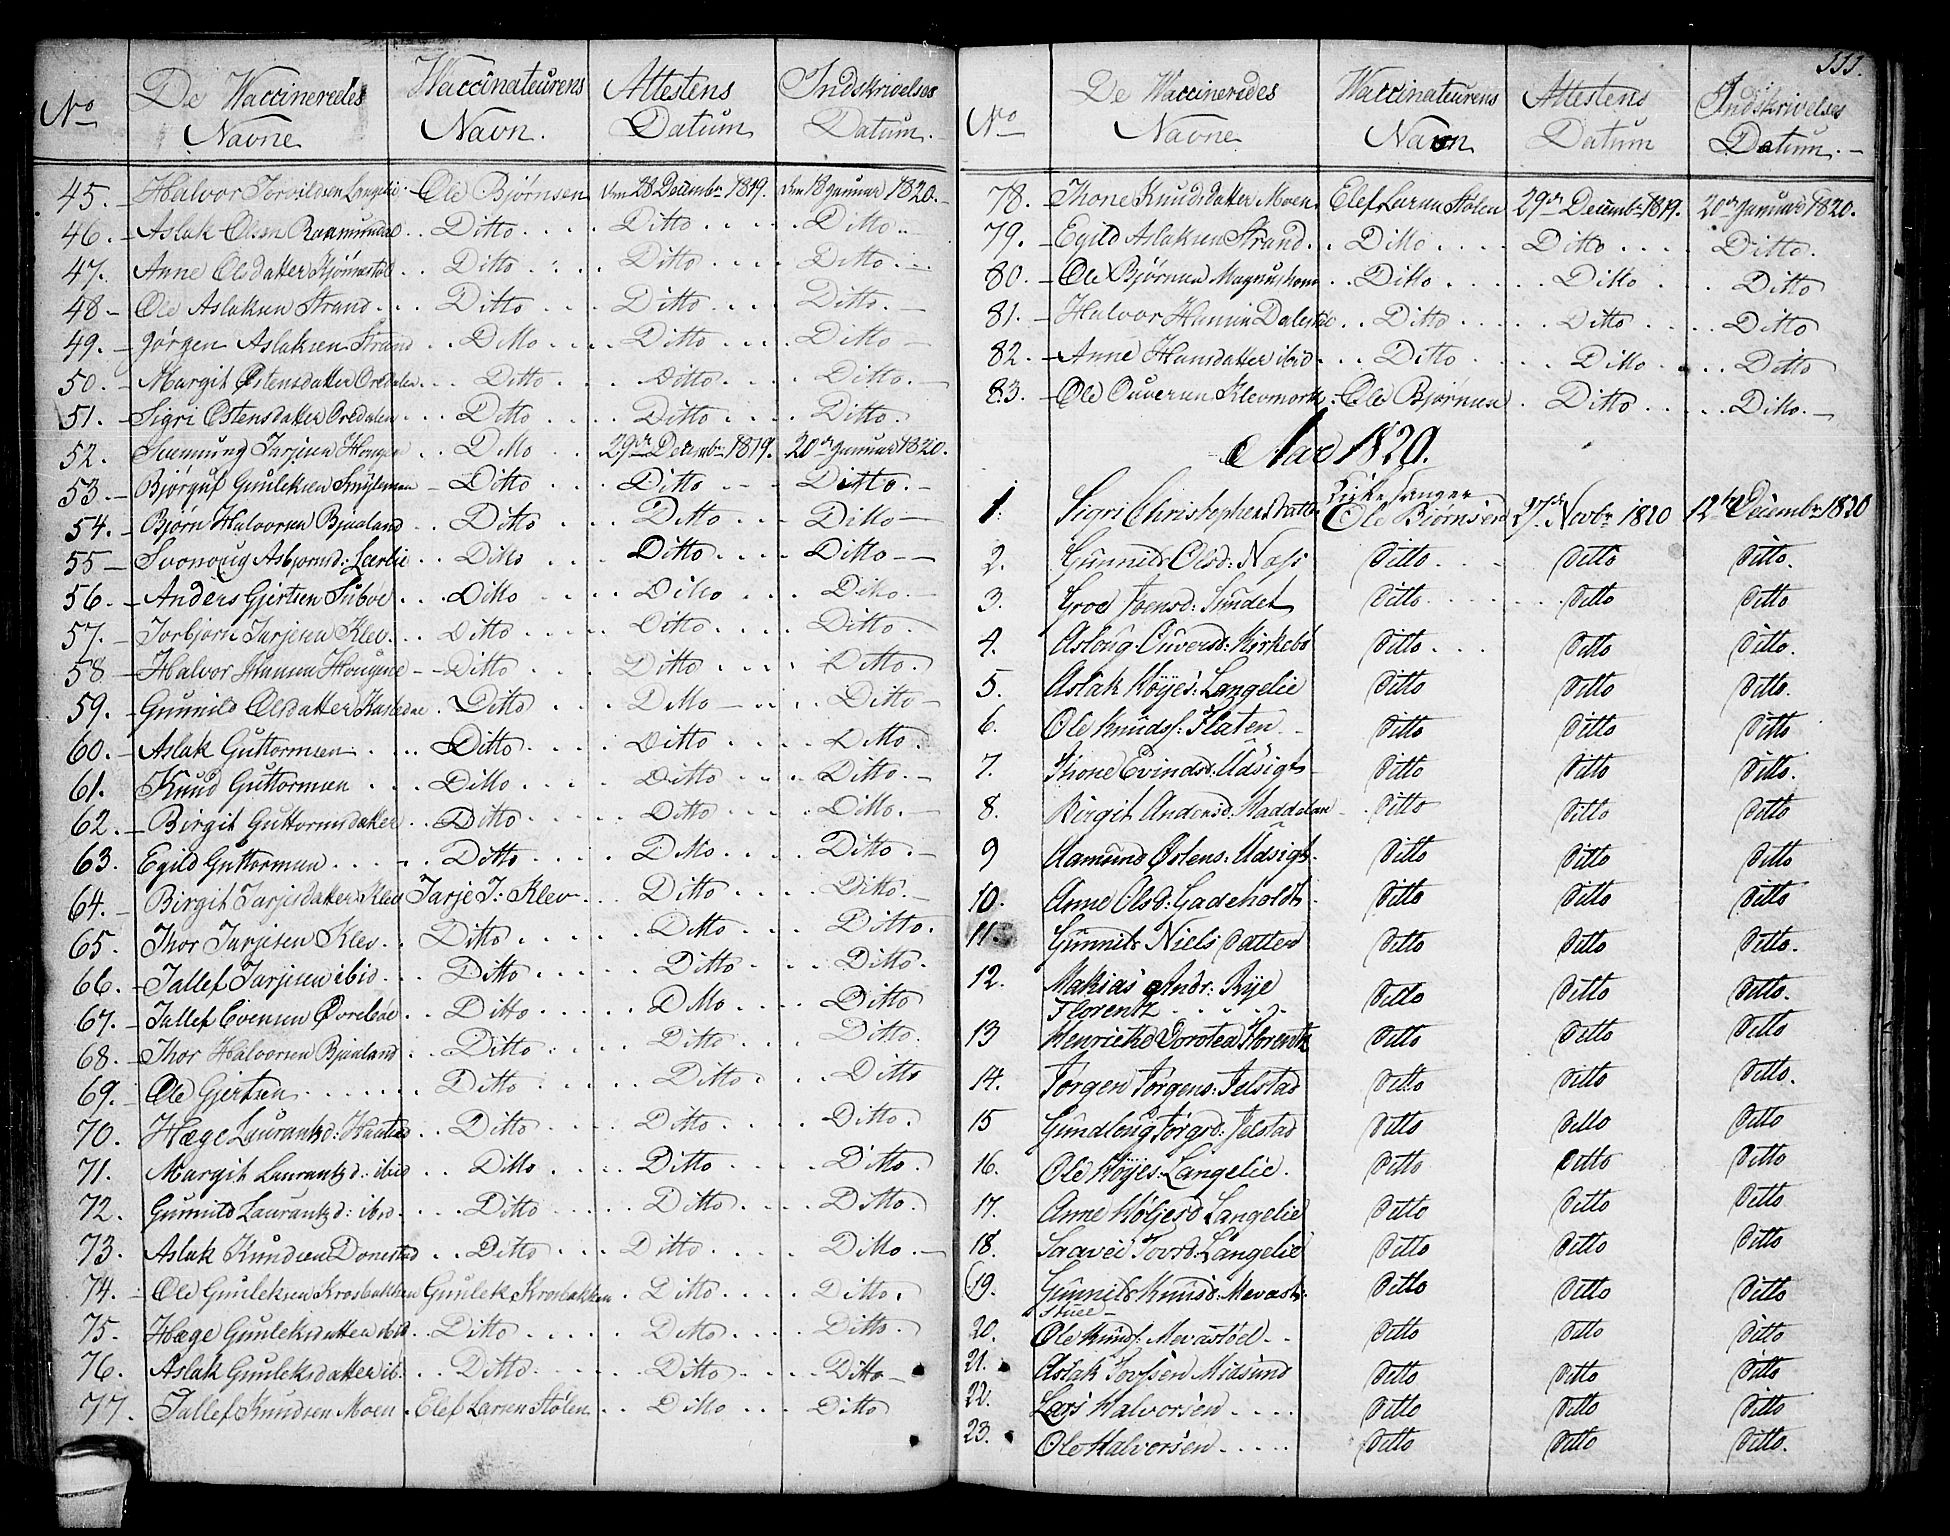 No
De Vaccineredes Navne
Vaccinateurens Navn.
Attestens Datum
Indskrivelses Datum.
45. Halvor Torvildsen Langelie. Ole Bjørnsen den 28 Decembr 1819. den 18 Januar 1820.
46. Aslak Olsen Ditto Ditto Ditto
47. Anne Olsdatter Ditto Ditto Ditto
48 Ole Aslaksen Strand Ditto Ditto Ditto
49. Jørgen Aslaksen Strand Ditto Ditto Ditto
50. Margit Østensdatter Ditto Ditto Ditto
51. Sigri Østensdatter Ditto Ditto Ditto.
52. Tarjesen Ditto 29de Decembr 1819. 20de Januar 1820.
53. Bjørguf Gunleksen Ditto Ditto Ditto.
54. Bjørn Halvorsen Bjaaland Ditto Ditto Ditto
55 Asbjørnsd: Ditto Ditto Ditto
56. Anders Gjertsen Ditto Ditto Ditto.
57. Torbjørn Tarjesen Klev. Ditto Ditto Ditto.
58 Halvor Hansen Ditto Ditto Ditto.
59. Gunnild Olsdatter Ditto Ditto Ditto
60. Aslak Guttormsen Ditto Ditto Ditto.
61. Knud Guttormsen Ditto Ditto Ditto.
62. Birgit Guttormsdatter Ditto Ditto Ditto
63. Egild Guttormsen Ditto Ditto Ditto.
64. Birgit Tarjesdatter Klev Tarje T: Klev Ditto Ditto.
65. Thor Tarjesen Klev. Ditto Ditto Ditto.
66. Tallef Tarjesen ibid. Ditto Ditto Ditto.
67. Tallef Evensen Ditto Ditto Ditto
68. Thor Halvorsen Bjaaland Ditto Ditto Ditto.
69. Ole Gjertsen Ditto Ditto Ditto
70. Hæge Laurantzd: Ditto Ditto Ditto.
71. Margit Laurantzd: ibid Ditto Ditto Ditto.
72. Gunnild Laurantzd: ibid. Ditto Ditto Ditto.
73. Aslak Knudsen Donestad Ditto Ditto Ditto.
74. Ole Gunleksen Krosbakken Gunlek Krosbakken Ditto Ditto.
75. Hæge Gunleksdatter ibid. Ditto Ditto Ditto.
76. Aslak Gunleksdatter ib. Ditto Ditto Ditto
77. Tallef Knudsen Moen. Elef Larsen Stølen Ditto Ditto
111.
No
De Vaccineredes Navne
Vaccinateurens Navn
Attestens Datum
Indskrivelses Datum.
78. Thone Knudsdatter Moen. Elef Larsen Stølen 29de Decembr 1819. 20de Januar 1820.
79. Egild Aslaksen Strand. Ditto Ditto Ditto.
80. Ole Bjørnsen Ditto Ditto Ditto
81. Halvor Hansen Ditto Ditto Ditto
82. Anne Hansdatter ibid Ditto Ditto Ditto
83. Ole Ouversen Ole Bjørnsen Ditto Ditto.
Aar 1820.
Kirkesanger
1. Sigri Christophersdatter Ole Bjørnsen 27de Novbr 1820 12te Decembr 1820
2. Gunnild Olsd: Ditto Ditto Ditto.
3. Groe Joensd: Ditto Ditto Ditto
4. Asloug Ouversd: Kirkebö Ditto Ditto Ditto.
5. Aslak Höyes: Langelie Ditto Ditto Ditto.
6. Ole Knuds: Flaten Ditto Ditto Ditto
7. Thone Evindsd: Udsigt Ditto Ditto Ditto.
8. Birgit Andersd: Ditto Ditto Ditto
9 Aamund Östens: Udsigt Ditto Ditto Ditto
10. Anne Olsd: Ditto Ditto Ditto
11. Gunnild Niels Datter Ditto Ditto Ditto.
12. Mathias Andr: Rije Ditto Ditto Ditto.
Florentz
13 Henriethe Dorotea Florentz Ditto Ditto Ditto
14. Jörgen Jörgens: Jelstad Ditto Ditto Ditto.
15 Gundloug Jörgd: Jelstad Ditto Ditto Ditto
16. Ole Höyes: Langelie. Ditto Ditto Ditto
17. Anne Höljesd Langelie Ditto Ditto Ditto
18. Saavei Tovsd: Langelie Ditto Ditto Ditto
19. Gunnild Knudsd: Ditto Ditto Ditto
20. Ole Knuds: Ditto Ditto Ditto
21. Aslak Ditto Ditto Ditto
22. Lars Halvorsen Ditto Ditto Ditto
23. Ole Halvorsen Ditto Ditto Ditto.